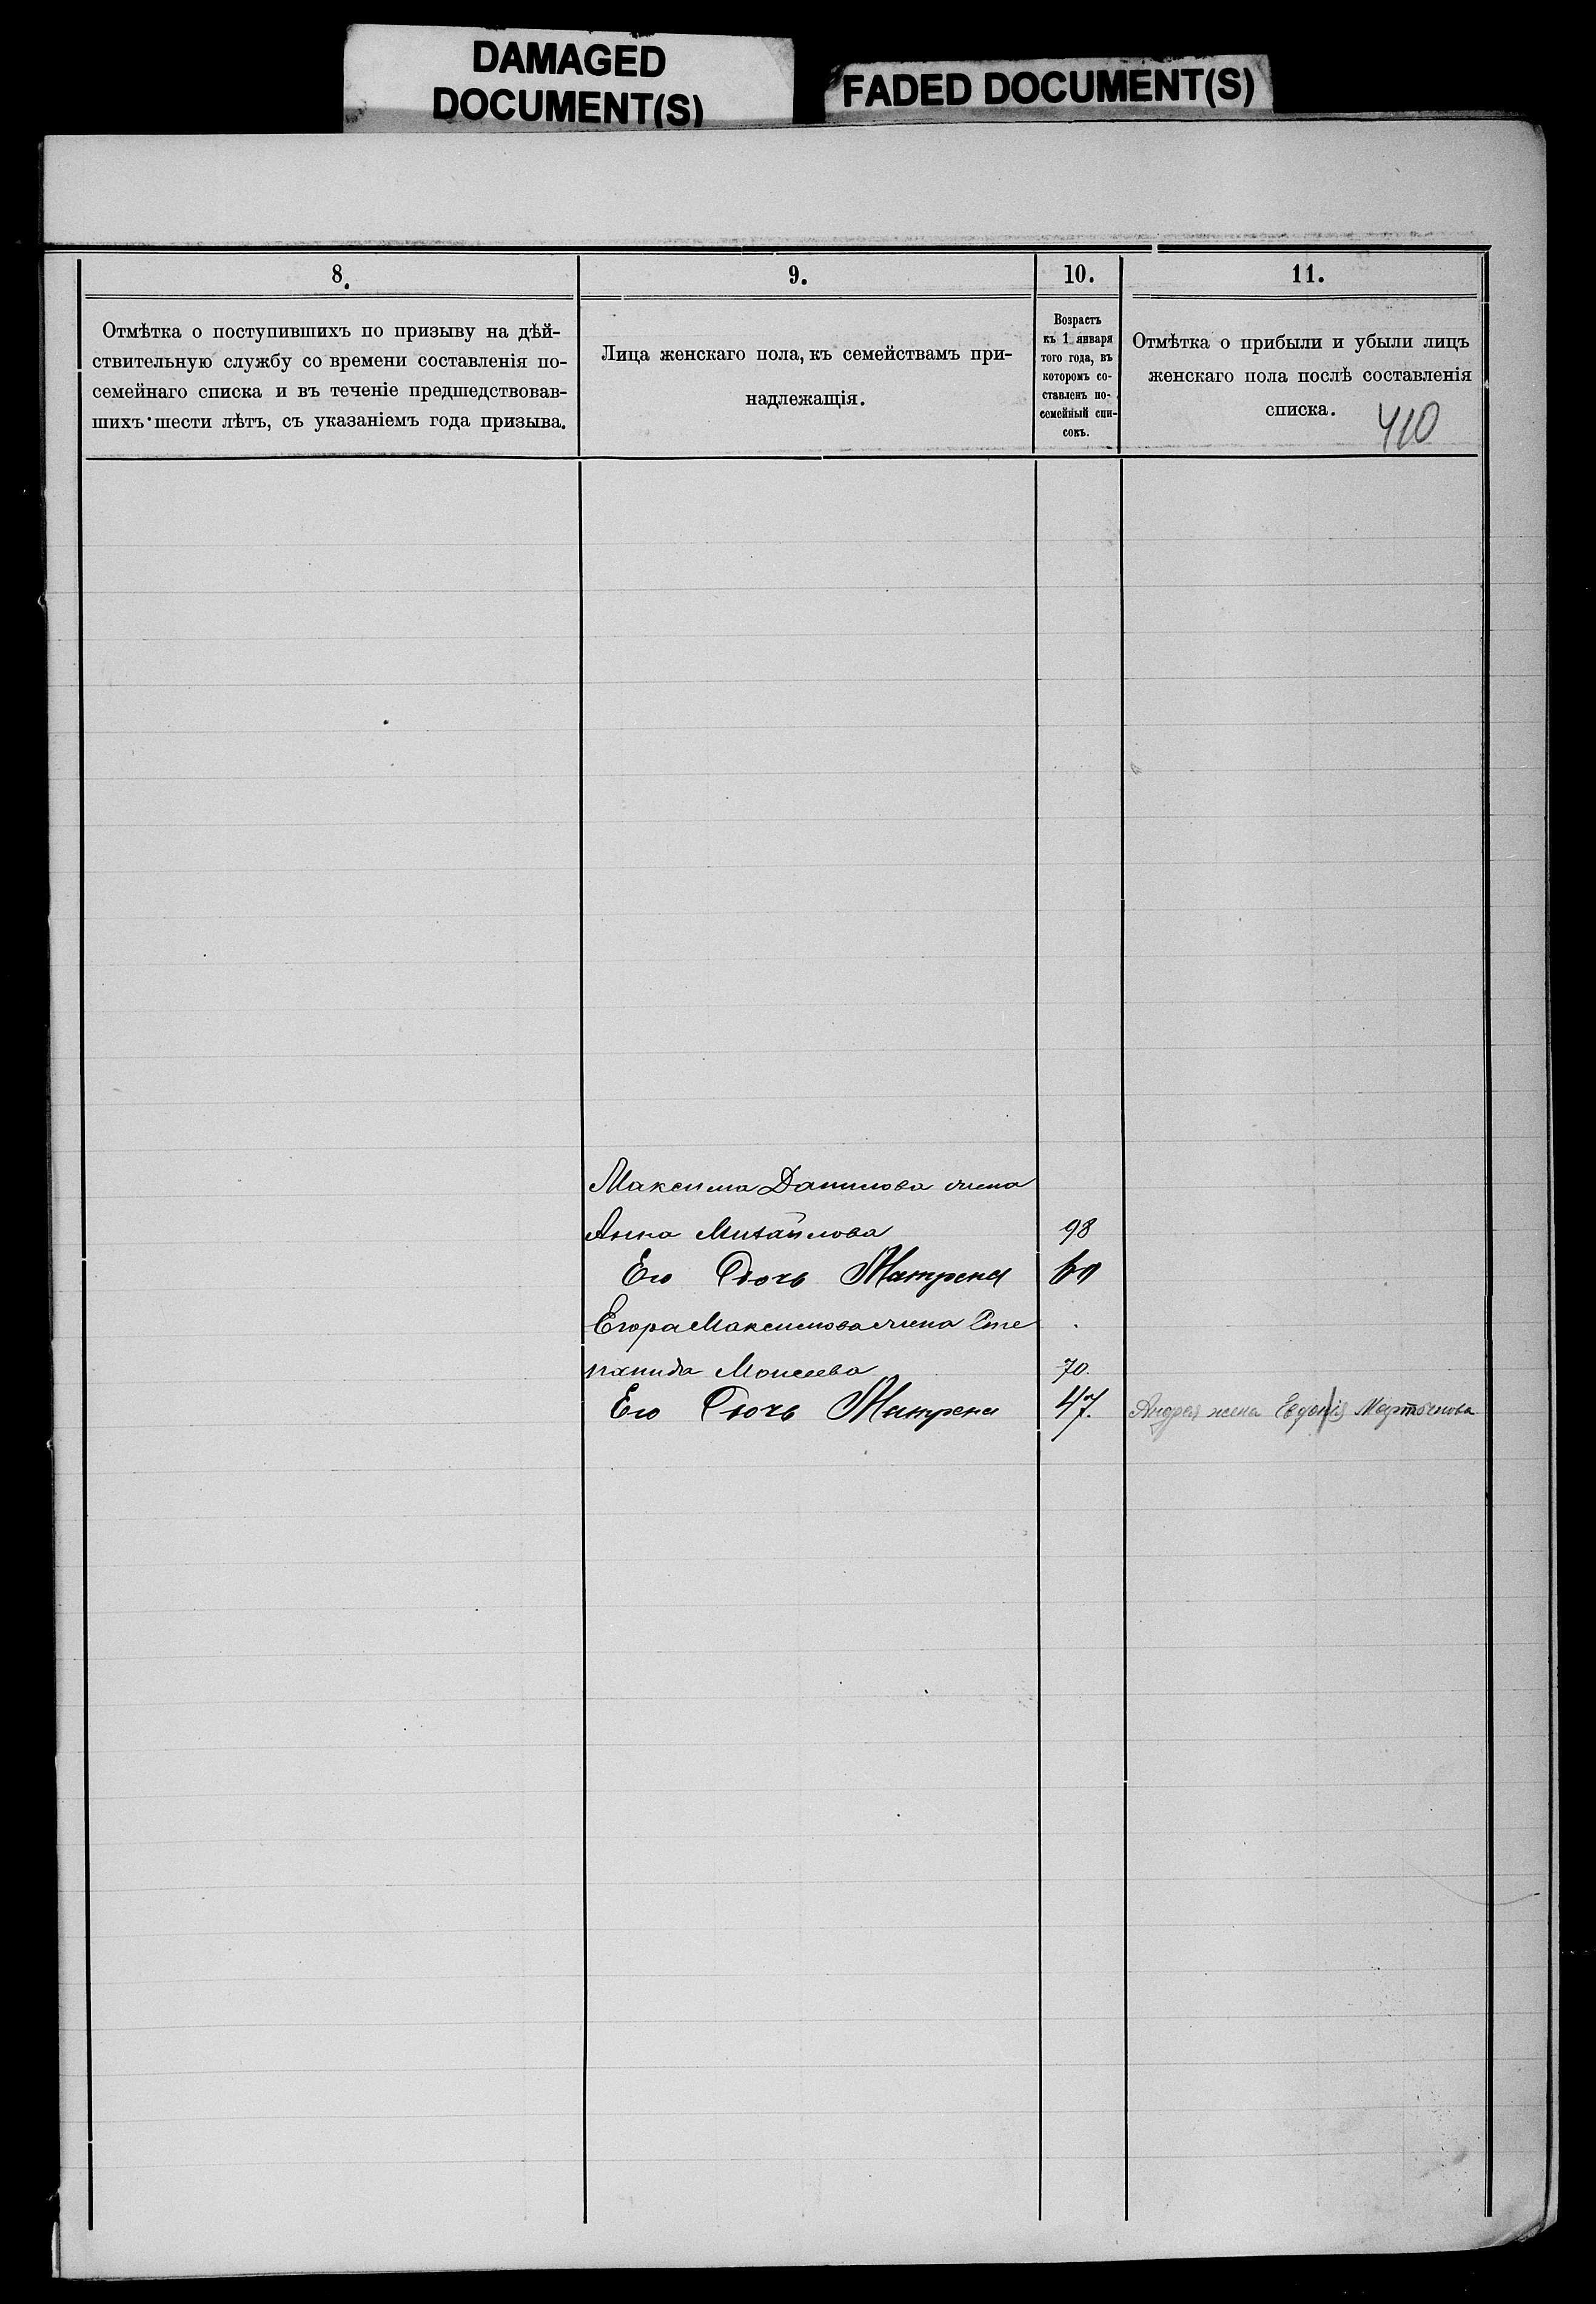 DAMAGED
DOCUMENT(S)
FADED DOCUMENT(S)
8.
Отмѣтка о поступившихъ по призыву на дѣй-
ствительную службу со времени составленія по-
семейнаго списка и въ теченіе предшедствовав-
шихъ шести лѣтъ, съ указаніемъ года призыва.
9.
Лица женскаго пола, къ семействамъ при-
надлежащія.
10.
Возрастъ
къ 1 января
того года, въ
которомъ со-
ставленъ по-
семейный спи-
сокъ.
11.
Отмѣтка о прибыли и убыли лицъ
женскаго пола послѣ составленія
списка.
410
Максима Данилова жена
Анна Михайлова 98
Его Дочь Матрена 60
Егора Максимова жена Сте
панида Моисеева 70.
Его Дочь Матрена 47. Андрея жена Евдокія Мартынова